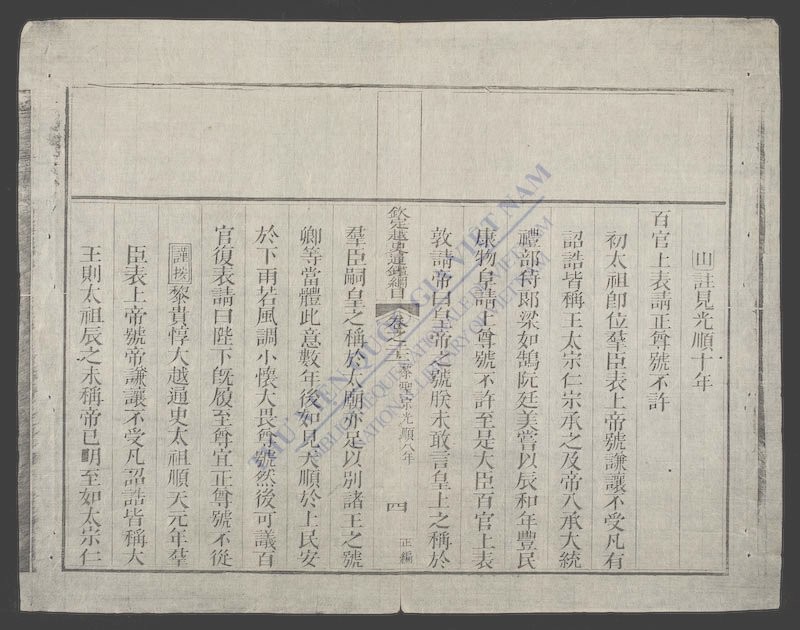 山註見光順十年
百官上表請正尊號不許
初太祖卽位羣臣表上帝號謙讓不受凡有
詔誥皆稱王太宗仁宗承之及帝入承大統
禮部侍郎梁如鵠阮廷美嘗以辰和年豐民
康物阜請上尊號不許至是大臣百官上表
敦請帝曰皇帝之號朕未敢言皇上之稱於
欽定越史通鑑綱目 卷之 黎聖宗光順八年 四 正編
羣臣嗣皇之稱於太廟亦足以別諸王之號
卿等當體此意數年後如見天順於上民安
於下雨若風調小懷大畏尊號然後可議百
官復表請曰陛下旣履至尊宜正尊號不從
謹按黎貴惇大越通史太祖順天元年羣
臣表上帝號帝謙讓不受凡詔誥皆稱大
王則太祖辰之未稱帝已明至如太宗仁
THƯ VIỆN QUỐC GIA VIỆT NAM
BIBLIOTHÈQUE NATIONALE DU VIETNAM
NATIONAL LIBRARY OF VIETNAM